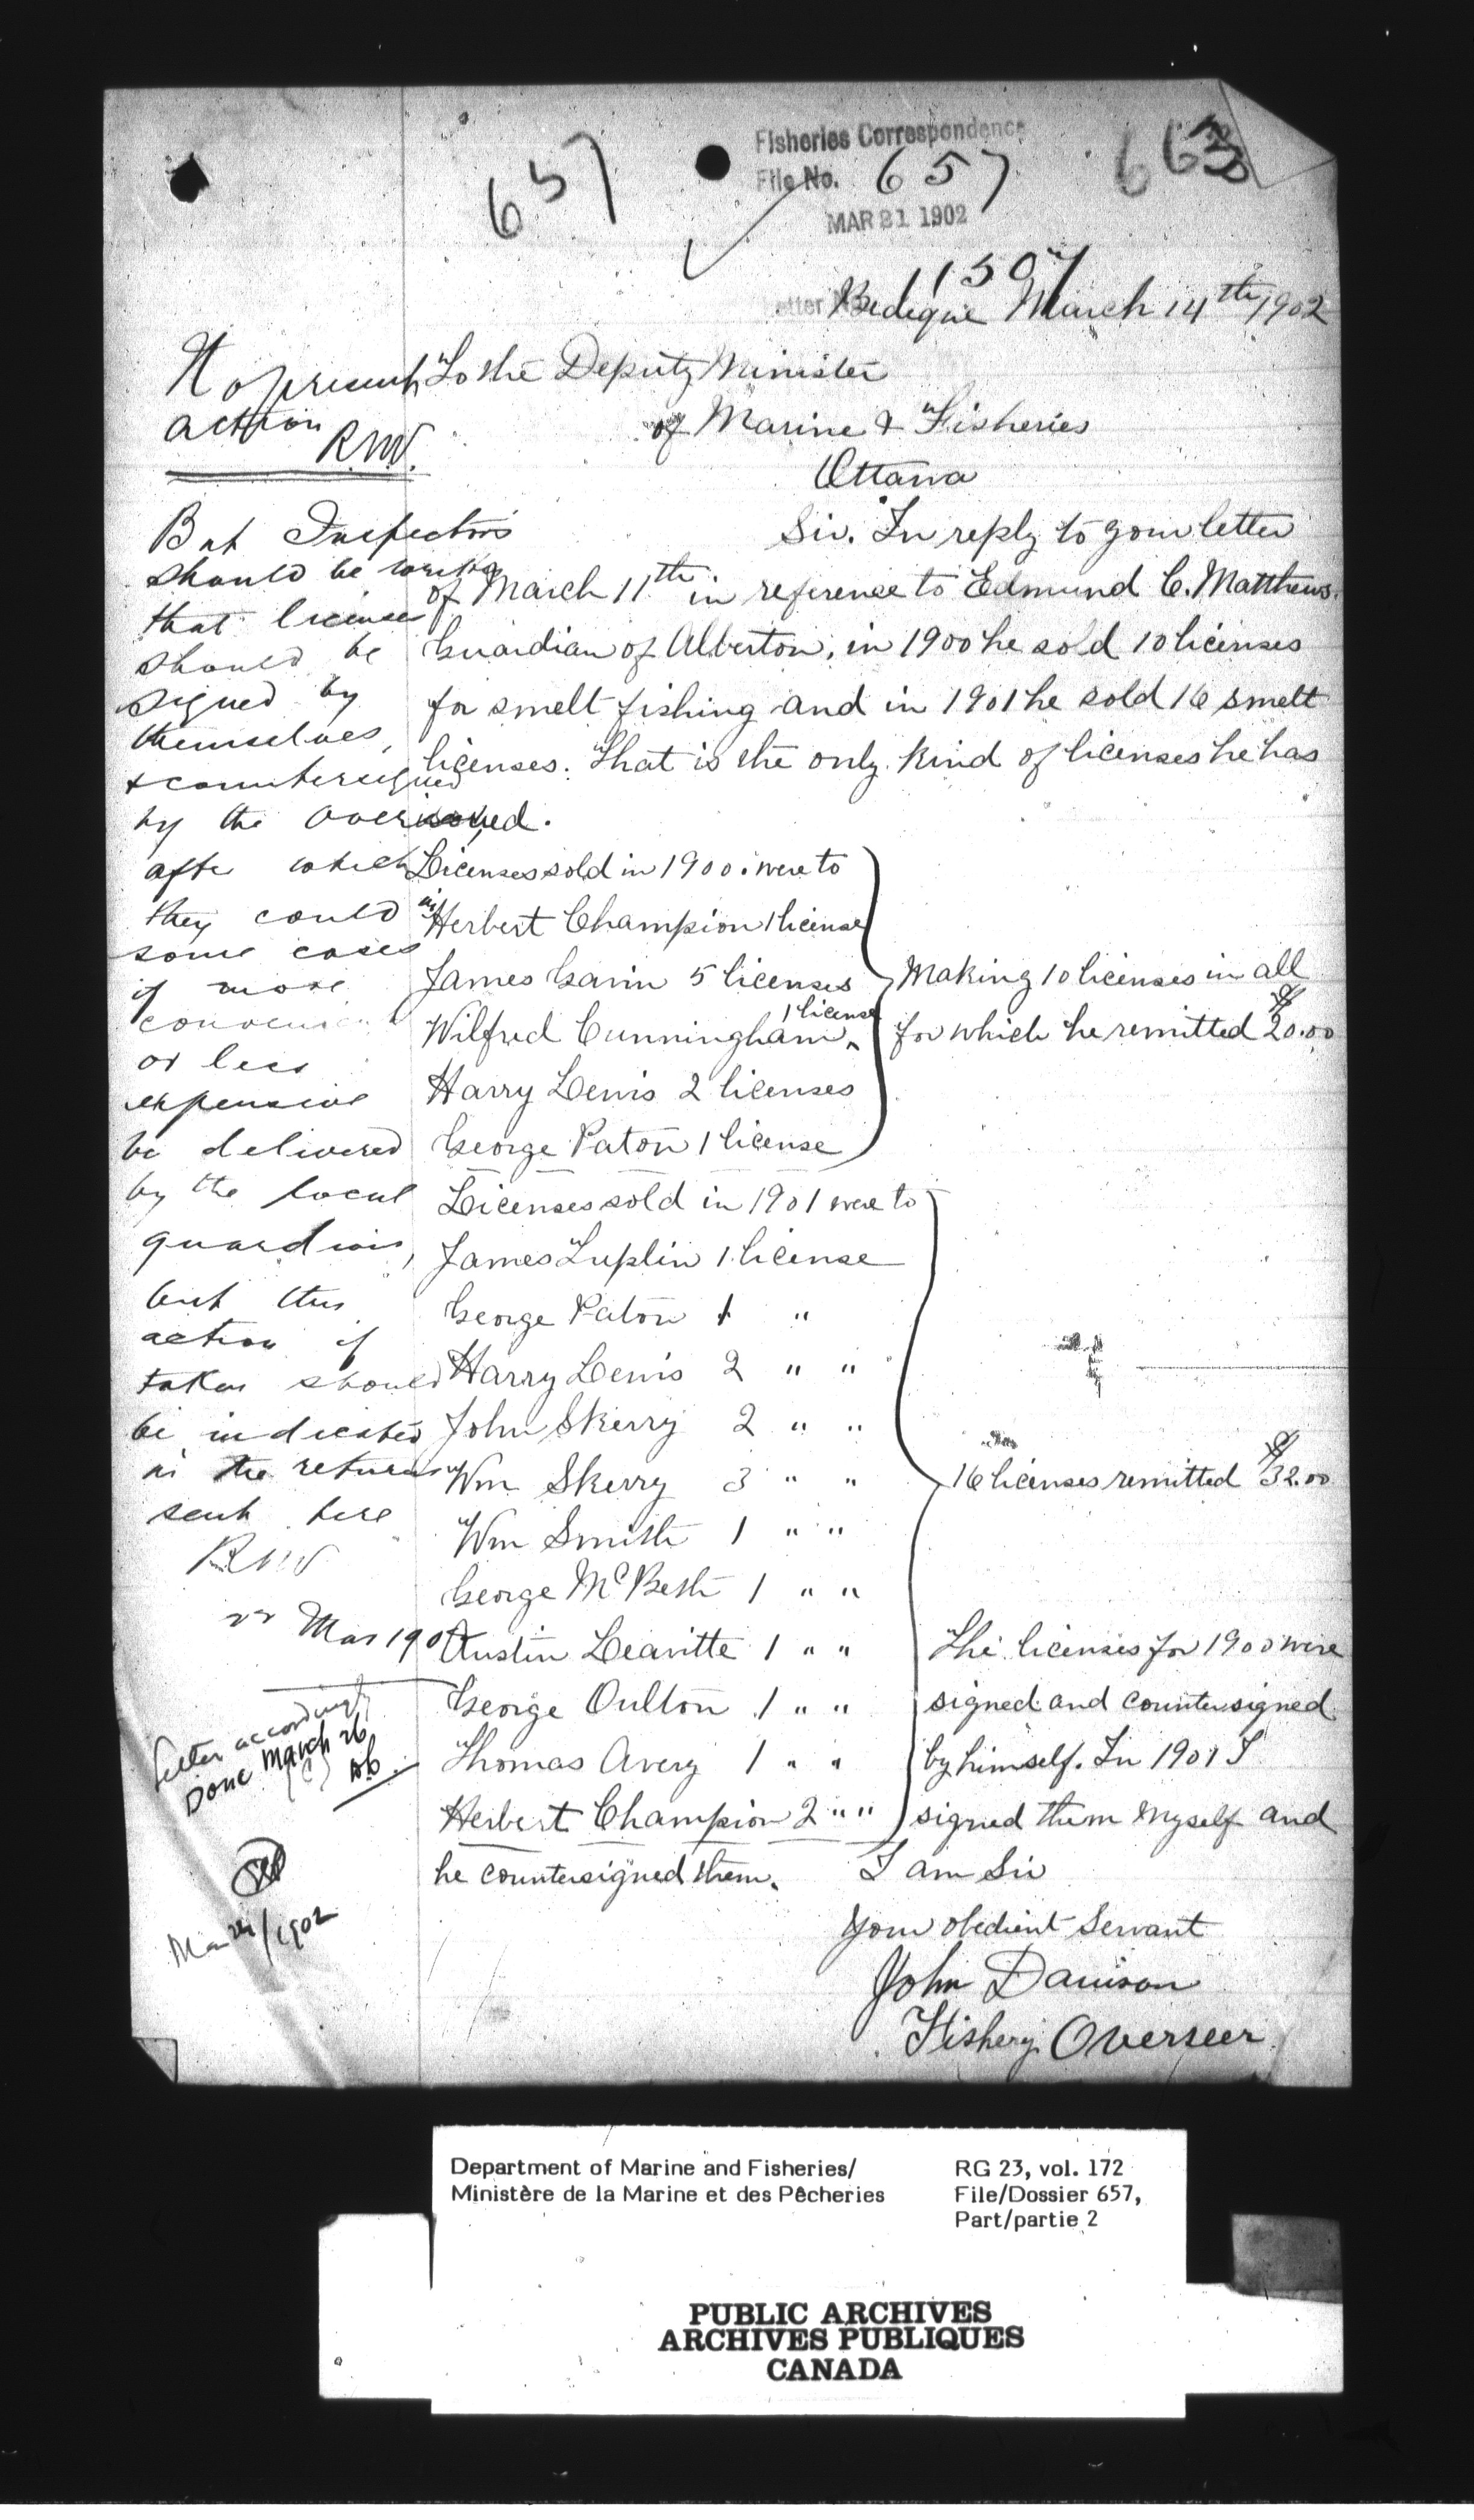 657
Fisheries Correspondence
File No. 657
MAR 21 1902
663
1507
Letter No.
Bedeque March 14th, 1902
To the Deputy Minister
of Marine & Fisheries
Ottawa
Sir. In reply to your letter
of March 11th in reference to Edmund C. Matthews.
Guardian of Alberton, in 1900 he sold 10 licenses
for smelt fishing and in 1901 he sold 16 smelt
licenses. That is the only kind of licenses he has
issued.
Licenses sold in 1900. were to
Herbert Champion 1 license
James Gavin 5 licenses
Wilfred Cunningham 1 license
Harry Lewis 2 licenses
George Paton 1 license
Making 10 licenses in all
for which he remitted $20.00
Licenses sold in 1901 were to
James Luplin 1 license
George Paton 1 "
Harry Lewis 2 " "
John Skerry 2 " "
Wm Skerry 3 " "
Wm Smith 1 " "
George McBeth 1 " "
Austin Leavitte 1 " "
George Oulton 1 " "
Thomas Avery 1 " "
Herbert Champion 2 " "
16 licenses remitted $32.00
The licenses for 1900 were
signed and countersigned
by himself. In 1901 I
signed them myself and
he countersigned them. I am Sir
Your obedient Servant
John Davison
Fishery Overseer
No present
action
R.W.
But Inspectors
should be
that licenses
should be
signed by
themselves,
& countersigned
by the over
after which
they could in
some cases
if more
convenient
or less
expensive
be delivered
by the local
guardian,
but this
action if
taken should
be indicated
in the returns
sent here
RW
22 Mar 190
Letter accordingly
Done March 26
Mar 24/1902
Department of Marine and Fisheries/
Ministère de la Marine et des Pêcheries
RG 23, vol. 172
File/Dossier 657,
Part/partie 2
PUBLIC ARCHIVES
ARCHIVES PUBLIQUES
CANADA